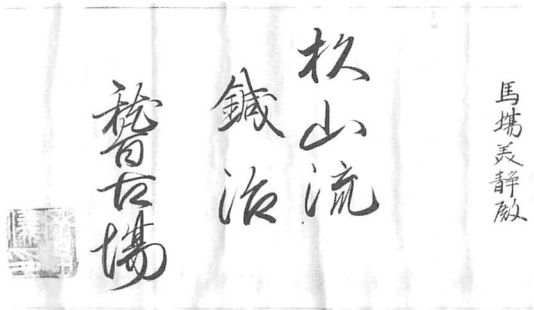 馬場美静殿
杉山流
鍼治
稽古場